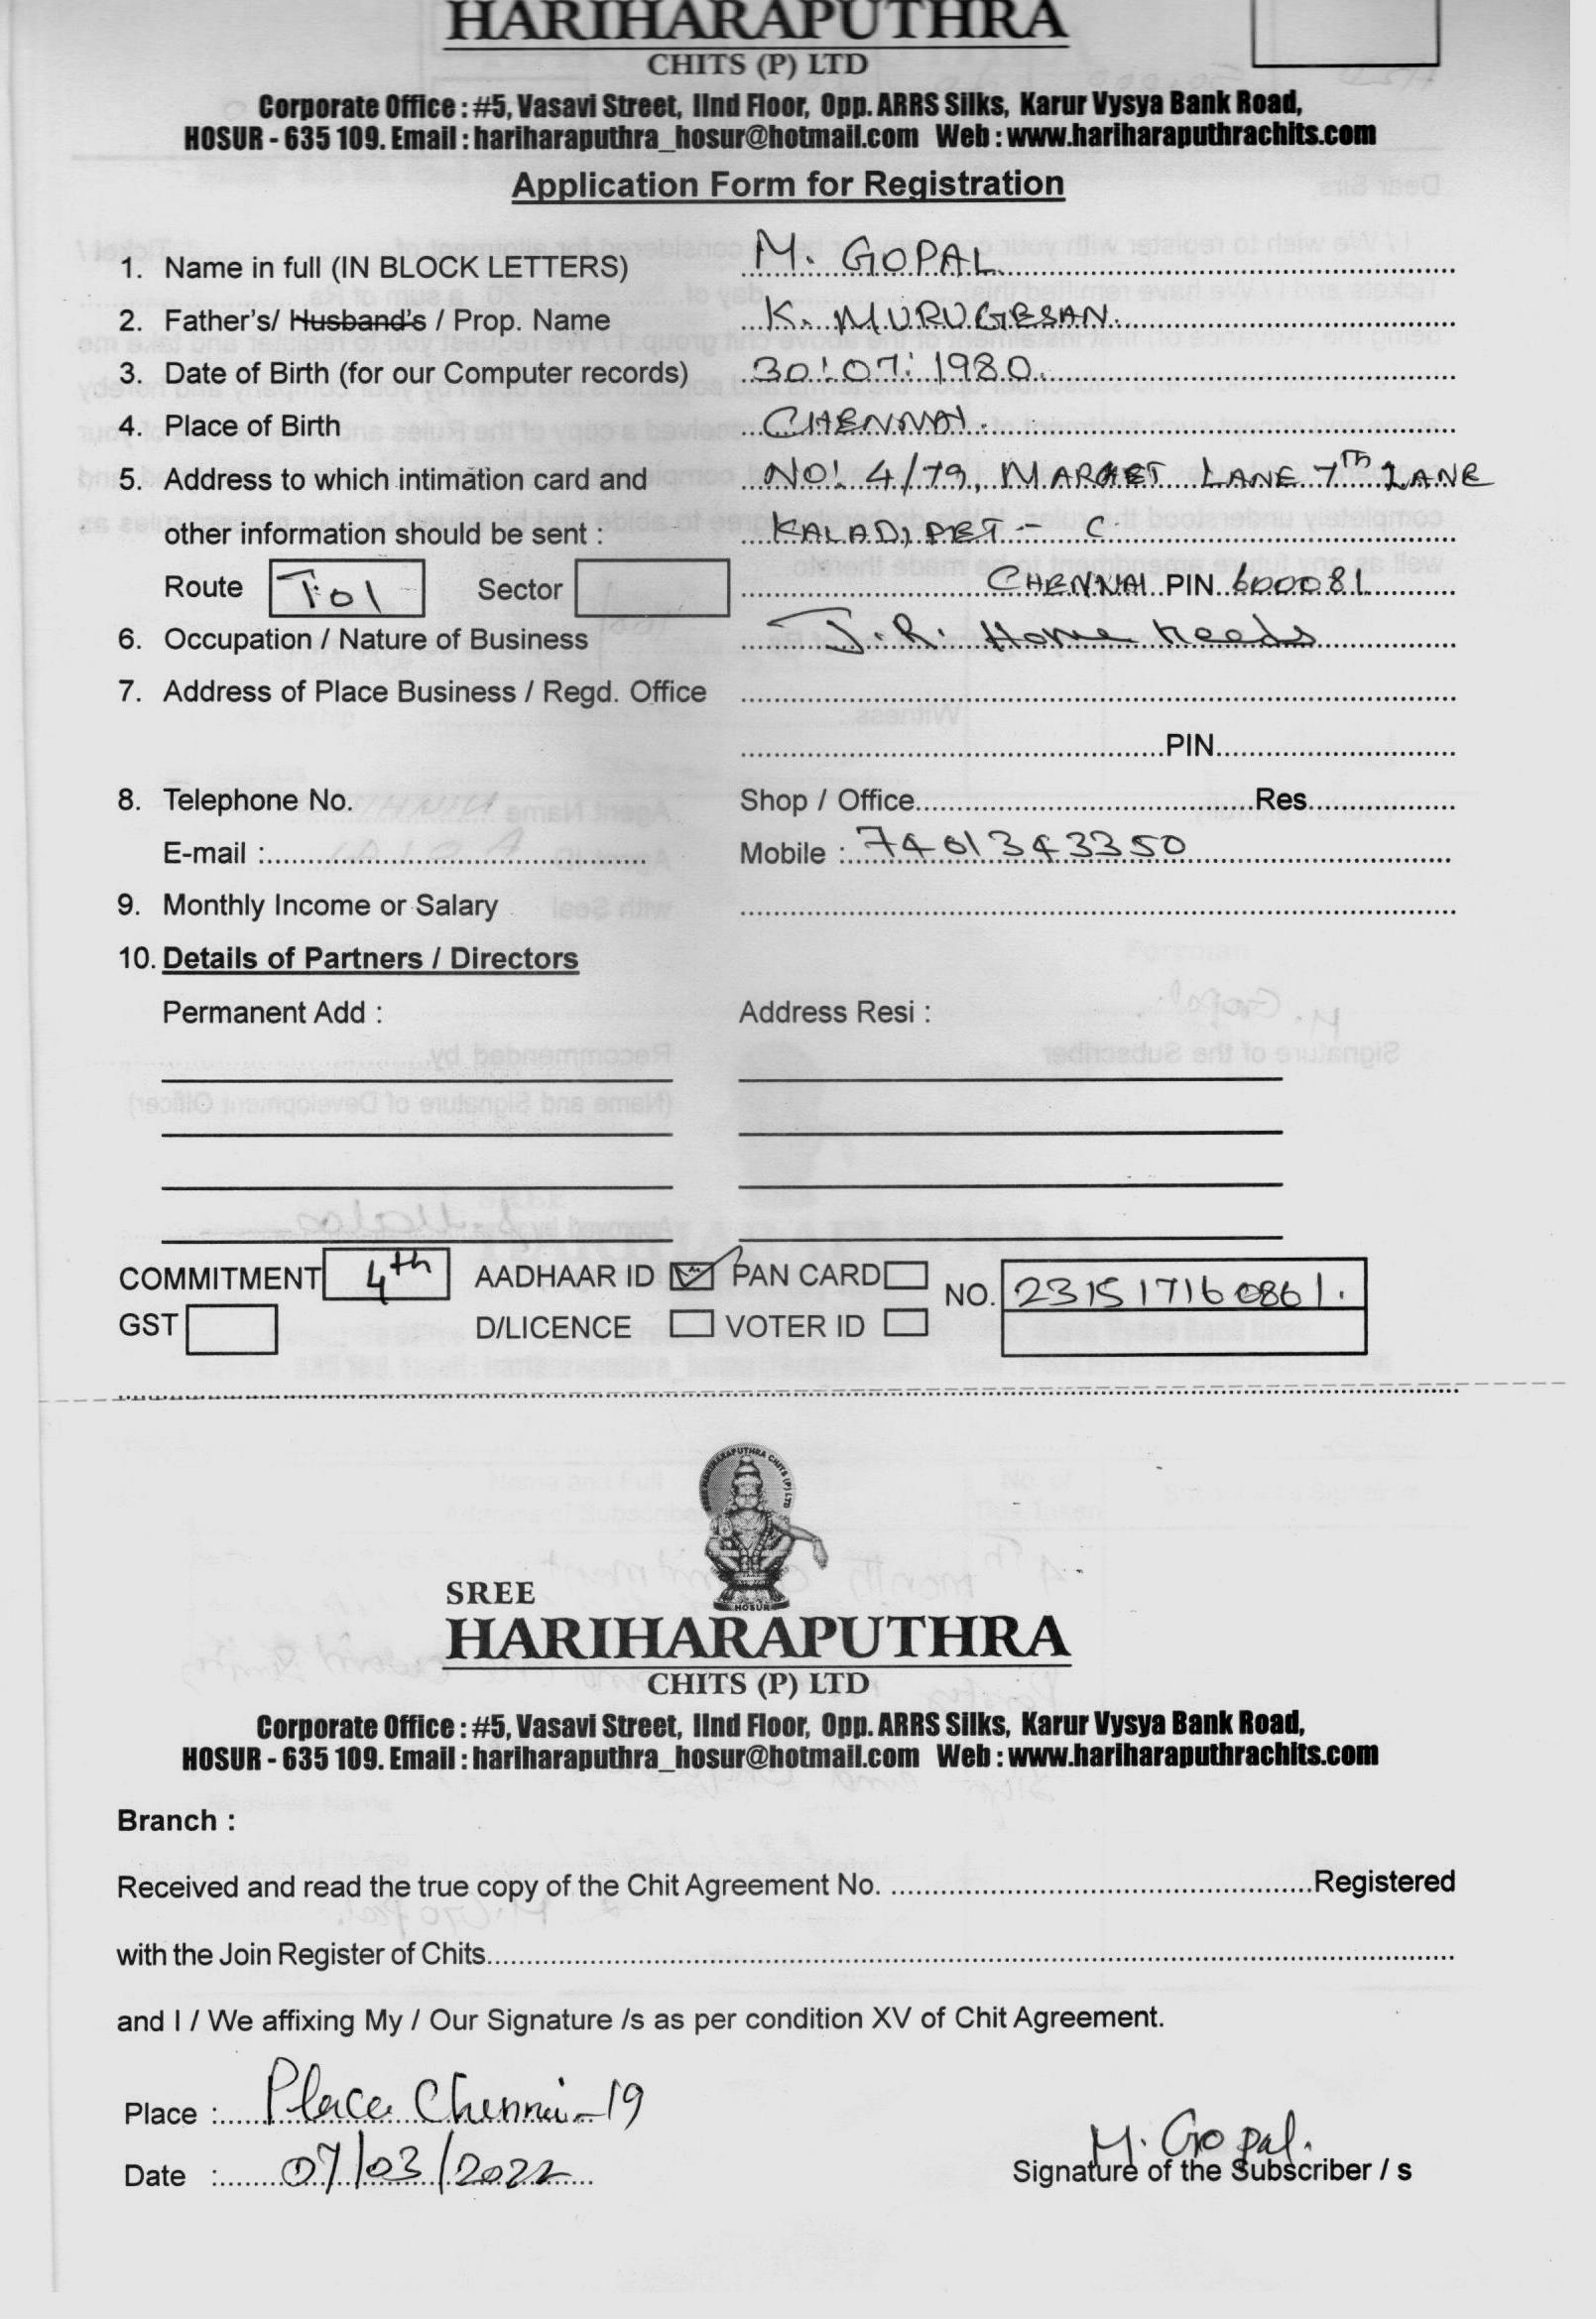 HARIHARAPUTHRA
CHITS (P) LTD
Corporate Office : #5, Vasavi Street, IInd Floor, Opp. ARRS Silks, Karur Vysya Bank Road,
HOSUR - 635 109. Email : hariharaputhra_hosur@hotmail.com Web : www.hariharaputhrachits.com
Application Form for Registration
1. Name in full (IN BLOCK LETTERS) M. GOPAL
2. Father's/ Husband's / Prop. Name K. MURUGESAN.
3. Date of Birth (for our Computer records) 30:07:1980.
4. Place of Birth CHENNAI.
5. Address to which intimation card and NO: 4/79, MARKET LANE 7TH LANE
other information should be sent : KALADIPET - C
Route T01 Sector CHENNAI PIN 600081
6. Occupation / Nature of Business J.R. Home needs
7. Address of Place Business / Regd. Office
PIN
8. Telephone No. Shop / Office Res
E-mail : Mobile : 7401343350
9. Monthly Income or Salary
10. Details of Partners / Directors
Permanent Add : Address Resi :
COMMITMENT 4th AADHAAR ID PAN CARD NO. 231517160861.
GST D/LICENCE VOTER ID
SREE HARIHARAPUTHRA CHITS (P) LTD
HOSUR
SREE
HARIHARAPUTHRA
CHITS (P) LTD
Corporate Office : #5, Vasavi Street, IInd Floor, Opp. ARRS Silks, Karur Vysya Bank Road,
HOSUR - 635 109. Email : hariharaputhra_hosur@hotmail.com Web : www.hariharaputhrachits.com
Branch :
Received and read the true copy of the Chit Agreement No. Registered
with the Join Register of Chits
and I / We affixing My / Our Signature /s as per condition XV of Chit Agreement.
Place : Place Chennai-19
Date : 07/03/2022
M. Gopal.
Signature of the Subscriber / s